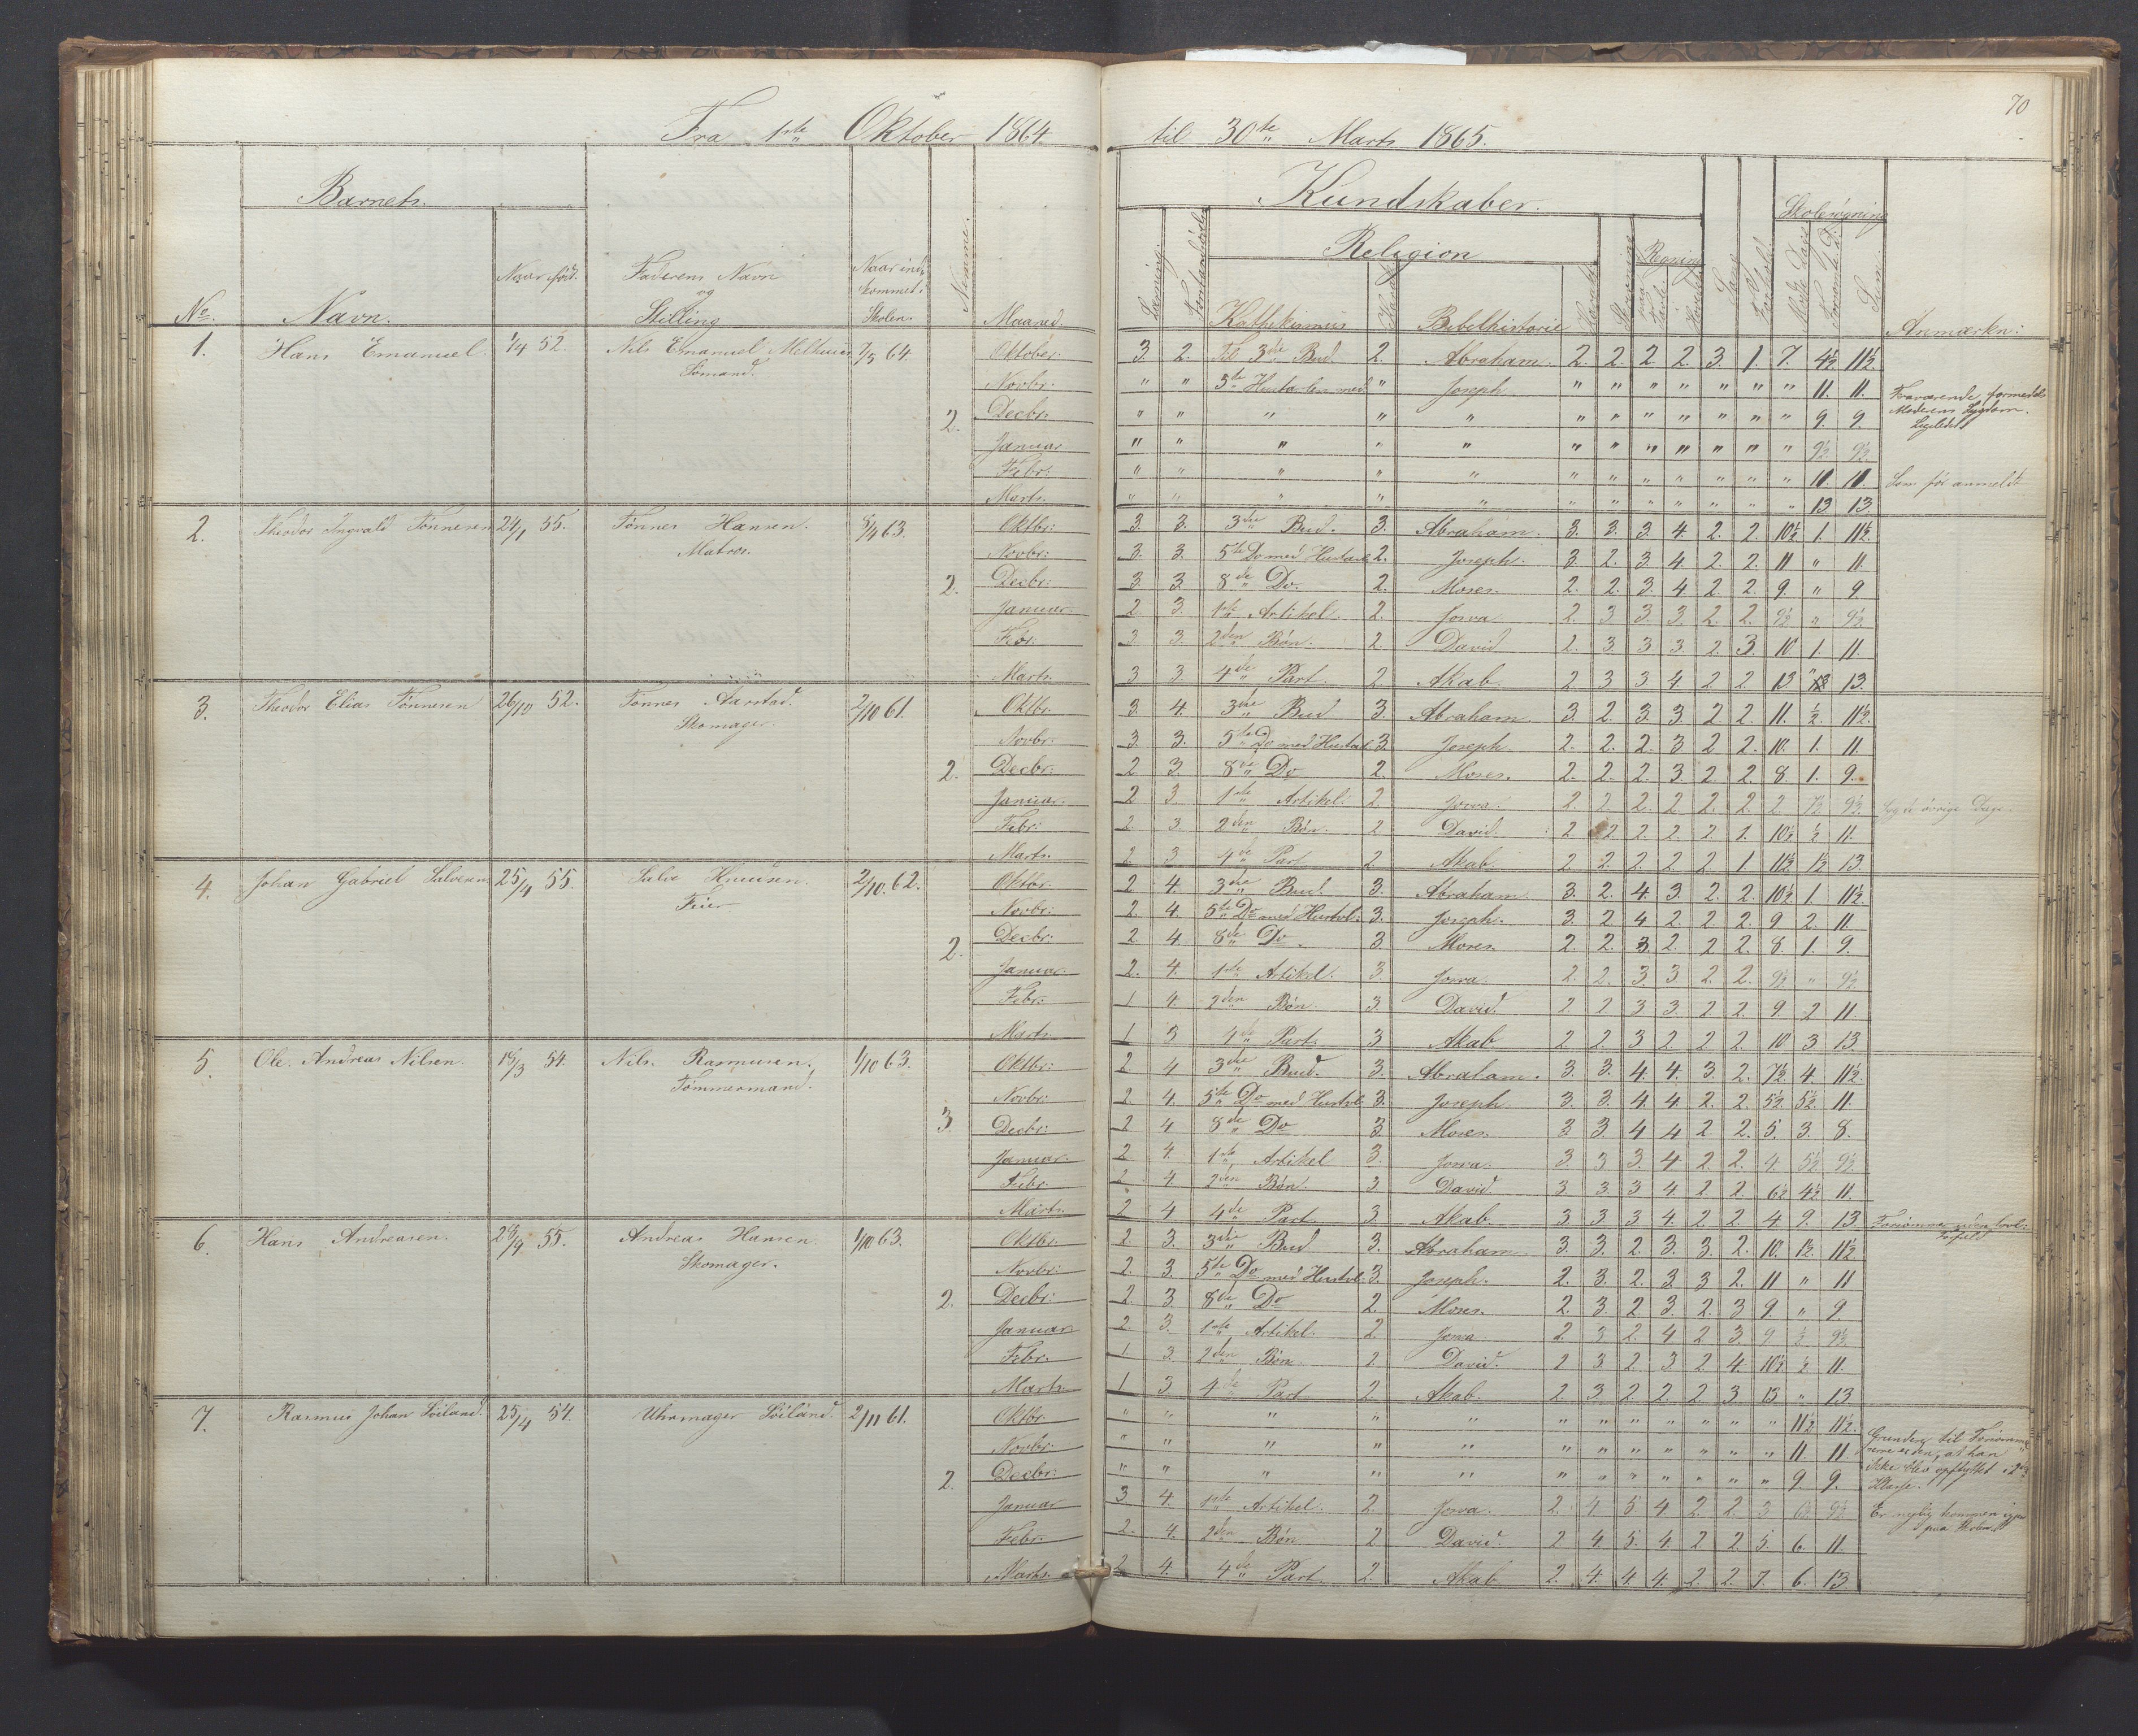 70
Fra 1ste Oktober 1864. til 30te Marts 1865.
Barnets. Kundskaber. Skolesøgning
Religion Regning
No. Navn. Naar født. Faderens Navn og Stilling Naar indkommet i Skolen. Nemme. Maaned. Læsning. Kathekismus Karakt. Bibelhistorie Karakt. Skrivning Sang Sum. Anmærkn:
1. Hans Emanuel. 1/4 52. Nils Emanuel Melhuus 7/5 64. Oktober: 3. 2. Til 3die Bud 2. Abraham. 2. 2. 2. 2. 3. 1. 7. 4½ 11½
Sømand. Novbr: " " 5te Hustavlen med " Joseph " " " " " " " 11. 11. Fraværende formedelst
2. Decbr. " " " " " " " " " " " " 9. 9. Moderens Sygdom.
Ligeledes
Januar " " " " " " " " " " " " 9½ 9½
Febr: " " " " " " " " " " " " 11. 11. Som før anmeldt
Marts. " " " " " " " " " " " " 13 13.
2. Theodor Ingvald Tønnesen 24/1 55. Tønnes Hansen. 8/4 63. Oktbr: 3. 3. 3die Bud. 3. Abraham. 3. 3. 3. 4. 2. 2. 10½ 1. 11½
Matros. Novbr: 3. 3. 5te Do med Hustavl 2. Joseph. 3. 2. 3. 4. 2. 2. 11 " 11.
2. Decbr: 3. 3. 8de Do. 2. Moses. 2. 2. 3. 4 2. 2. 9. " 9
Januar. 2. 3. 1ste Artikel. 2. Josva 2. 3 3. 3. 2. 2. 9½ " 9½
Febr: 3 3. 2den Bøn. 2. David 2. 3. 3. 3. 2 3. 10 1. 11.
Marts. 3 3 4de Part. 2. Akab. 2 3 3. 4 2. 2. 13 " 13.
3. Theodor Elias Tønnesen 26/10 52. Tønnes Aarstad. 2/10 61. Oktbr. 3. 4. 3die Bud 3. Abraham 3. 2. 3. 3. 2 2. 11. ½ 11½
Skomager. Novbr: 3. 3. 5te Do med Hustavl 3. Joseph. 2. 2. 2. 3 2 2. 10. 1. 11.
2. Decbr: 2 3. 8de Do 2. Moses. 2. 2. 2 3. 2 2. 8. 1. 9.
Januar. 2 3. 1ste Artikel. 2. Josva. 2. 2. 2. 2 2. 2 2 7½ 9½ Syg de øvrige Dage
Febr: 2 3. 2den Bøn. 2 David. 2 2. 2. 2. 2 1. 10½ ½ 11.
Marts. 2. 3. 4de Part 2. Akab. 2. 2. 2. 2. 2 1 11½ 1½ 13
4. Johan Gabriel Salvesen 25/4 55. Salve Knusen. 2/10. 62. Oktbr. 2 4. 3die Bud. 3. Abraham 3. 2. 4. 3. 2. 2. 10½ 1. 11½
Feier Novbr: 2. 4. 5te Do med Hustvl. 3. Joseph. 3 2 4 2 2. 2. 9 2. 11
2. Decbr: 2. 4. 8de Do. 3 Moses. 2. 2. 3. 2. 2 2. 8. 1. 9.
Januar. 2. 4. 1ste Artikel. 3. Josva. 2. 2. 3. 3 2. 2. 9½ " 9½
Febr: 1 4. 2den Bøn. 3. David. 2 2 3 3. 2 2. 9. 2 11.
Marts. 1 3 4de Part. 3 Akab 2 2 3 2. 2 2. 10 3 13.
5. Ole Andreas Nilsen. 15/3 54. Nils Rasmusen, 1/10 63. Oktbr: 2 4 3die Bud. 3. Abraham. 3. 3. 4. 4. 3. 2. 7½ 4. 11½
Tømmermand. Novbr: 2 4. 5te Do med Hustvl. 3. Joseph 3. 3. 4. 4 2. 2. 5½ 5½ 11.
3. Decbr: 2 4 8de Do 3. Moses. 3 3. 4 4 2. 2. 5. 3. 8.
Januar. 2 4. 1ste Artikel 3. Josva. 3. 3 3. 4 2. 2. 4 5½ 9½
Febr. 2 4 2den Bøn. 3 David. 3. 3. 3 4. 2 2. 6½ 4½ 11.
Marts. 2 4 4de Part 3. Akab. 3 3 3 4. 2 2. 4 9. 13
6. Hans Andreasen. 28/9 55. Andreas Hansen 1/10 63. Oktbr. 2. 3. 3die Bud 3. Abraham 3. 3. 2. 3. 3. 2. 10. 1½ 11½
Skomager. Novbr: 2. 3. 5te Do med Hustvl. 3. Joseph. 2. 3. 2. 3 3 2. 11 " 11
2. Decbr: 2. 3. 8de Do 2. Moses. 2. 3 2. 3. 2. 3 9. " 9.
Januar 2 3. 1ste Artikel. 2. Josva. 2 3 2. 4 2 3. 9 ½ 9½
Febr. 1 3. 2den Bøn. 2 David. 2 3 2. 3. 2 4. 10½ ½ 11.
Marts 1 3 4de Part 2. Akab. 2. 3. 2 2 2 3. 13 " 13.
7. Rasmus Johan Soiland. 25/4 54. Uhrmager Soiland. 2/11 61. Oktbr. " " " " " " " " " " " " 11½ 11½
Novbr: " " " " " " " " " " " " 11. 11. Grunden til Forsømmelserne er den, at han
2. Decbr: " " " " " " " " " " " " 9. 9. ikke blev opflyttet i 2den
Klasse.
Januar 3. 4. 1ste Artikel. 2. Josva. 2. 4 5 4 2. 2. 3 6½ 9½ Er nylig kommen igjen
paa Skolen
Febr. 2. 4. 2den Bøn. 2 David. 2 4. 5. 4. 2 2 5. 6. 11.
Marts. 2 4. 4de Part. 2. Akab 2. 4. 4. 4. 2. 2. 7. 6. 13